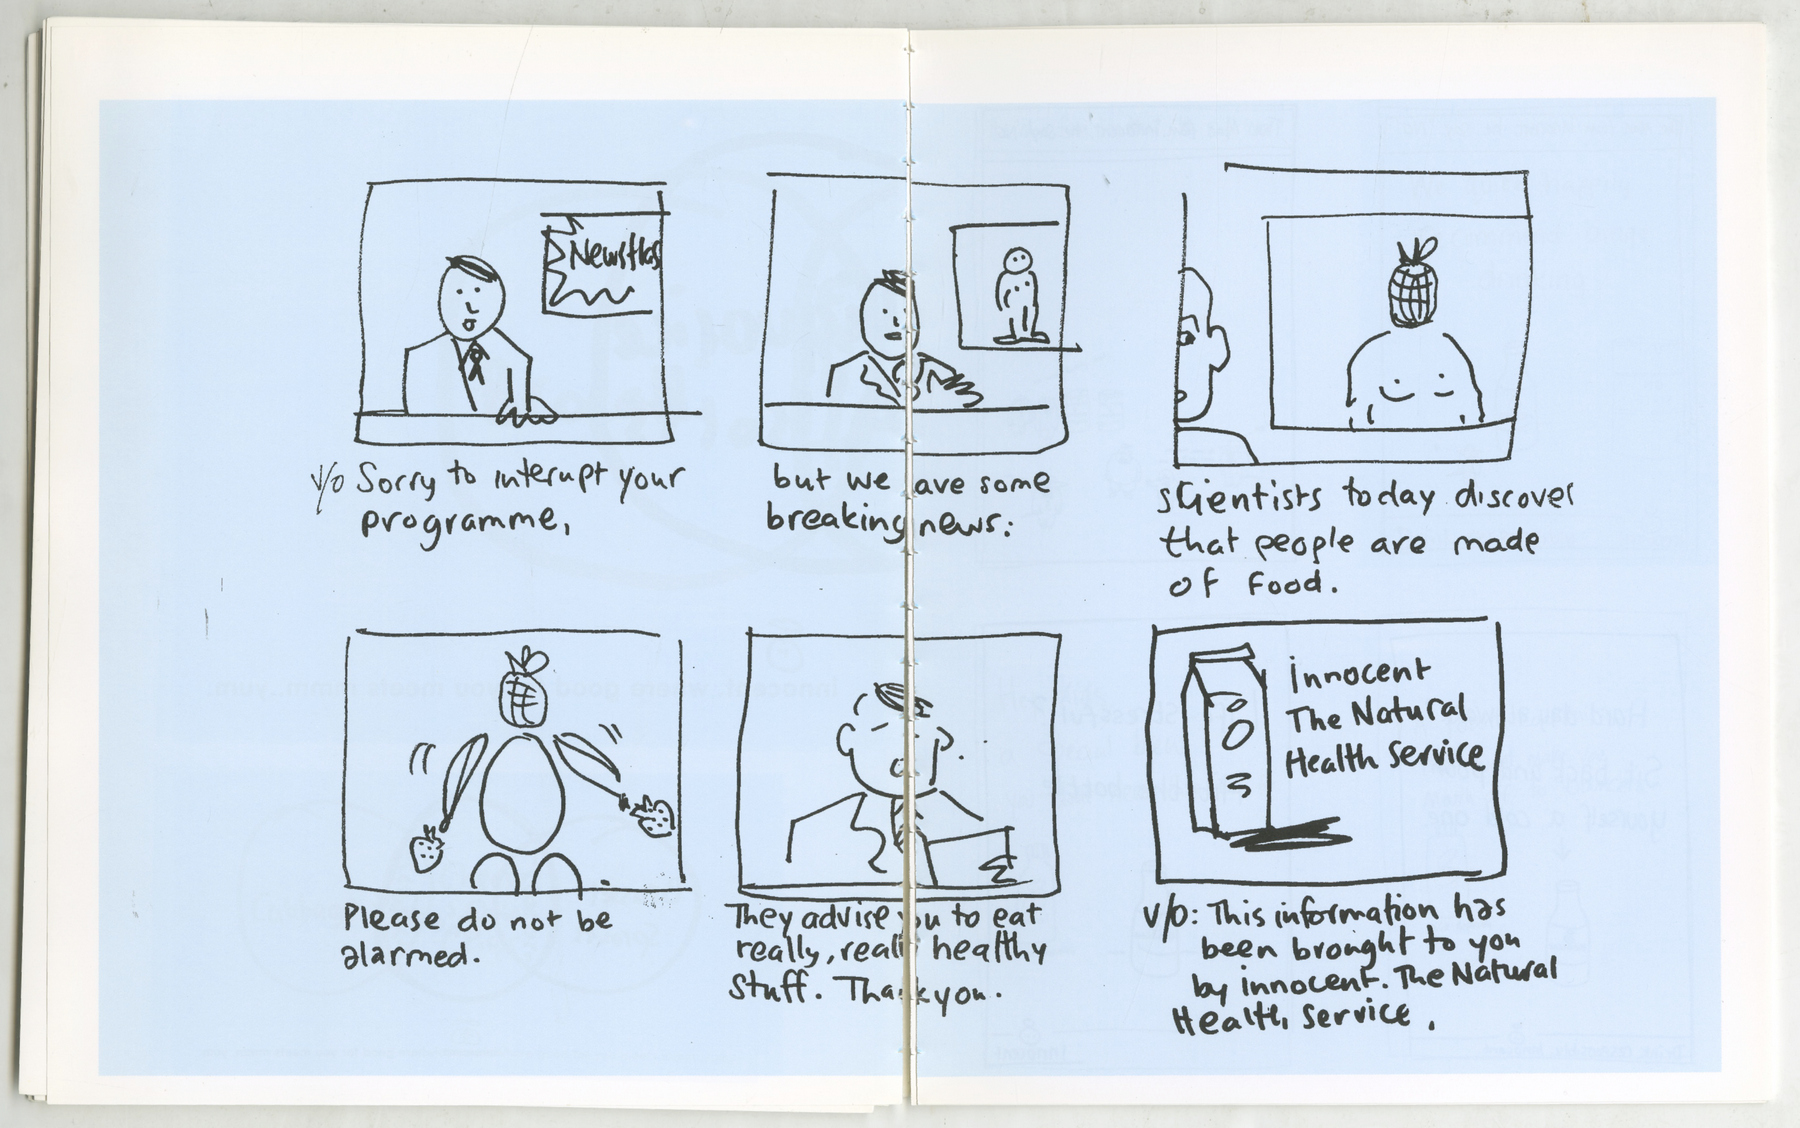 Newsflas
v/o Sorry to interupt your
programme,
but we have some
breaking news:
scientists today discover
that people are made
of food.
Please do not be
alarmed.
They advise you to eat
really, really healthy
stuff. Thank you.
innocent
The Natural
Health Service
v/o: This information has
been brought to you
by innocent. The Natural
Health Service.